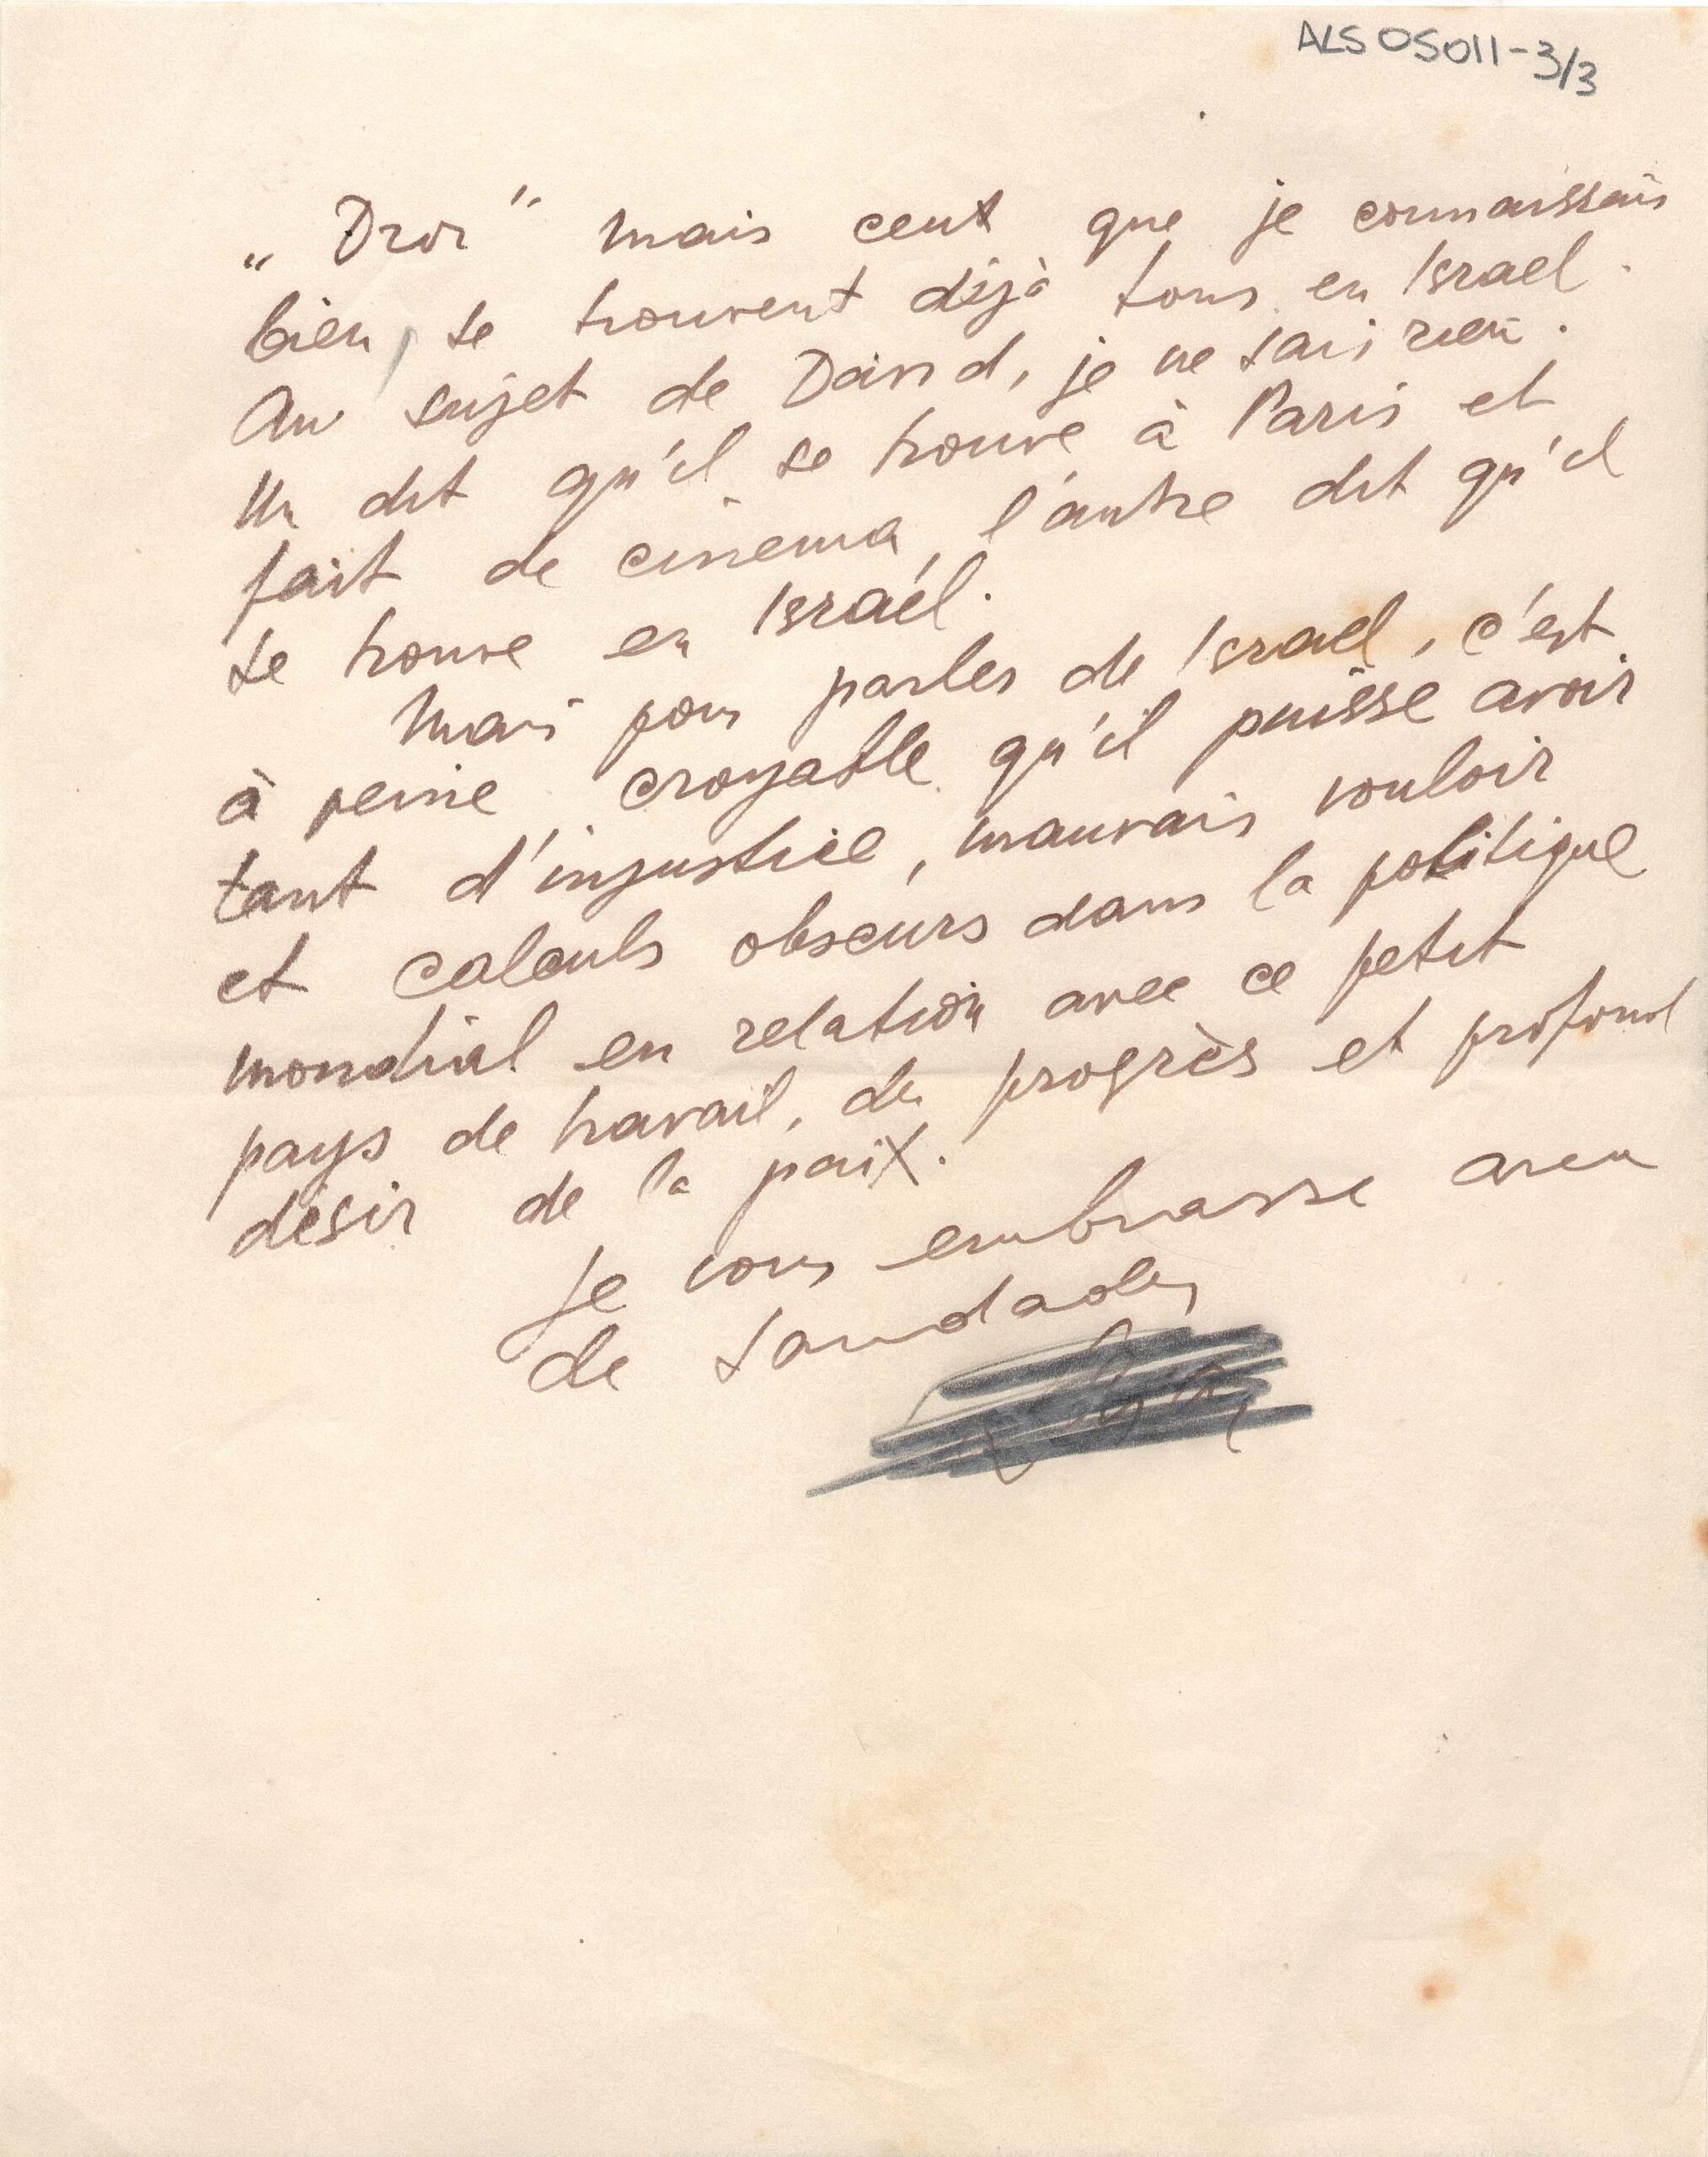 ALS 05011-3/3
„Dror" mais ceux que je connaissais
bien, se trouvent déjà tous en Israel.
Au sujet de David, je ne sais rien.
Un dit qu'il se trouve à Paris et
fait de cinema, l'autre dit qu'il
se trouve en Israël.
Mais pour parler de Israel, c'est
à peine croyable qu'il puisse avoir
tant d'injustice, mauvais vouloir
et calculs obscurs dans la politique
mondial en relation avec ce petit
pays de travail, de progrès et profond
désir de la paix.
Je vous embrasse avec
de saudades